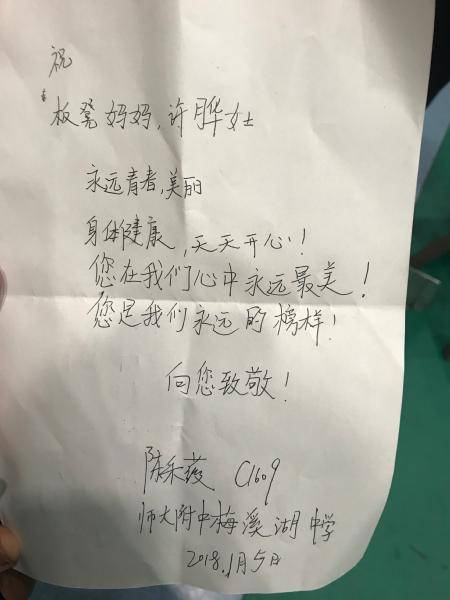 祝
板凳妈妈,许月华女士
永远青春,美丽
身体健康,天天开心!
您在我们心中永远最美!
您是我们永远的榜样!
向您致敬!
陈采薇 C1609
师大附中梅溪湖中学
2018.1月5日